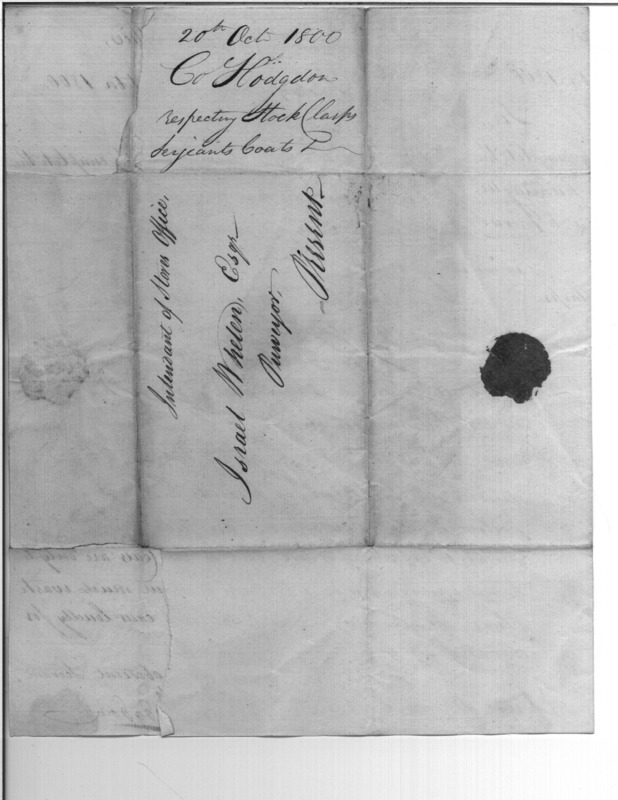 20th Oct 1800
Co Hodgdon
respecting Stock Clasps
Serjeants Coats &
Intendant of Stores Office,
Israel Whelen, Esqr
Purveyor,
Present